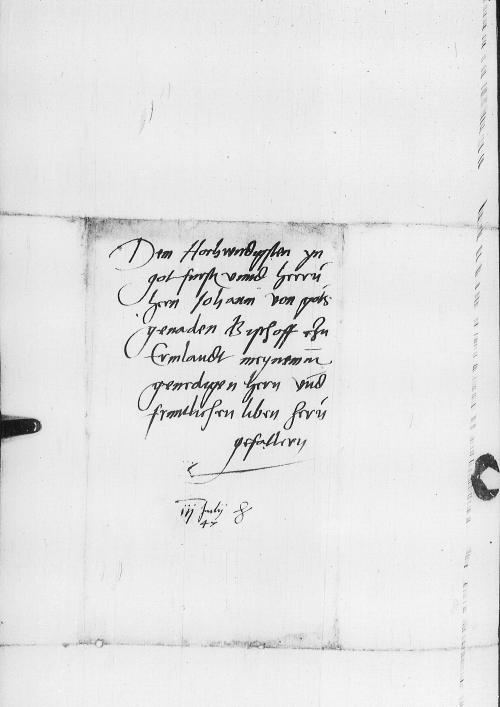 Dem Hochwirdigsten yn
got furst vnnd herrn
hern Johann von gots
genaden Bischoff czu
Ermlandt meynemm
genedigen hern vnd
fruntlichen liben hern
gefattern
iij Julij
47